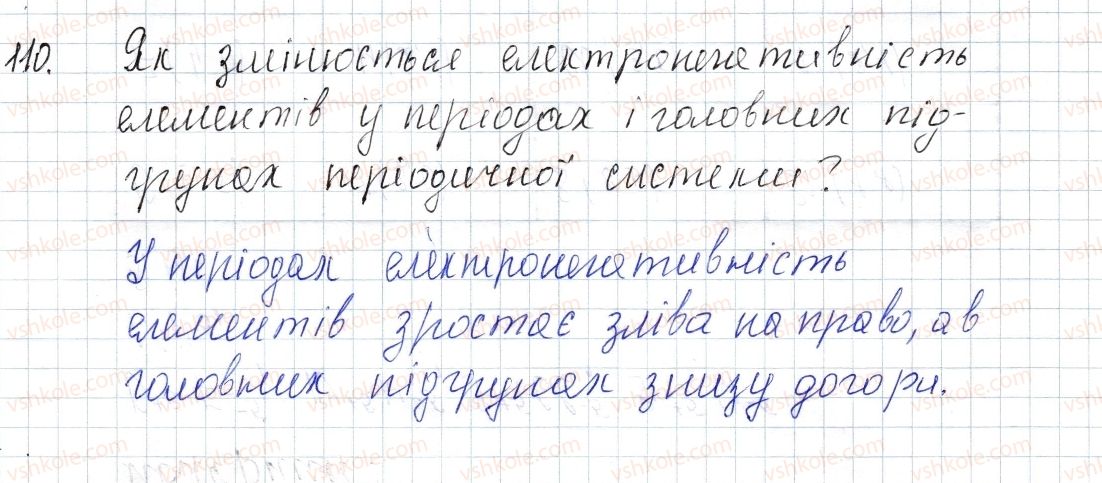 110. Як змінюється електронегативність
елементів у періодах і головних під-
групах періодичної системи?
У періодах електронегативність
елементів зростає зліва на право, а в
головних підгрупах знизу догори.